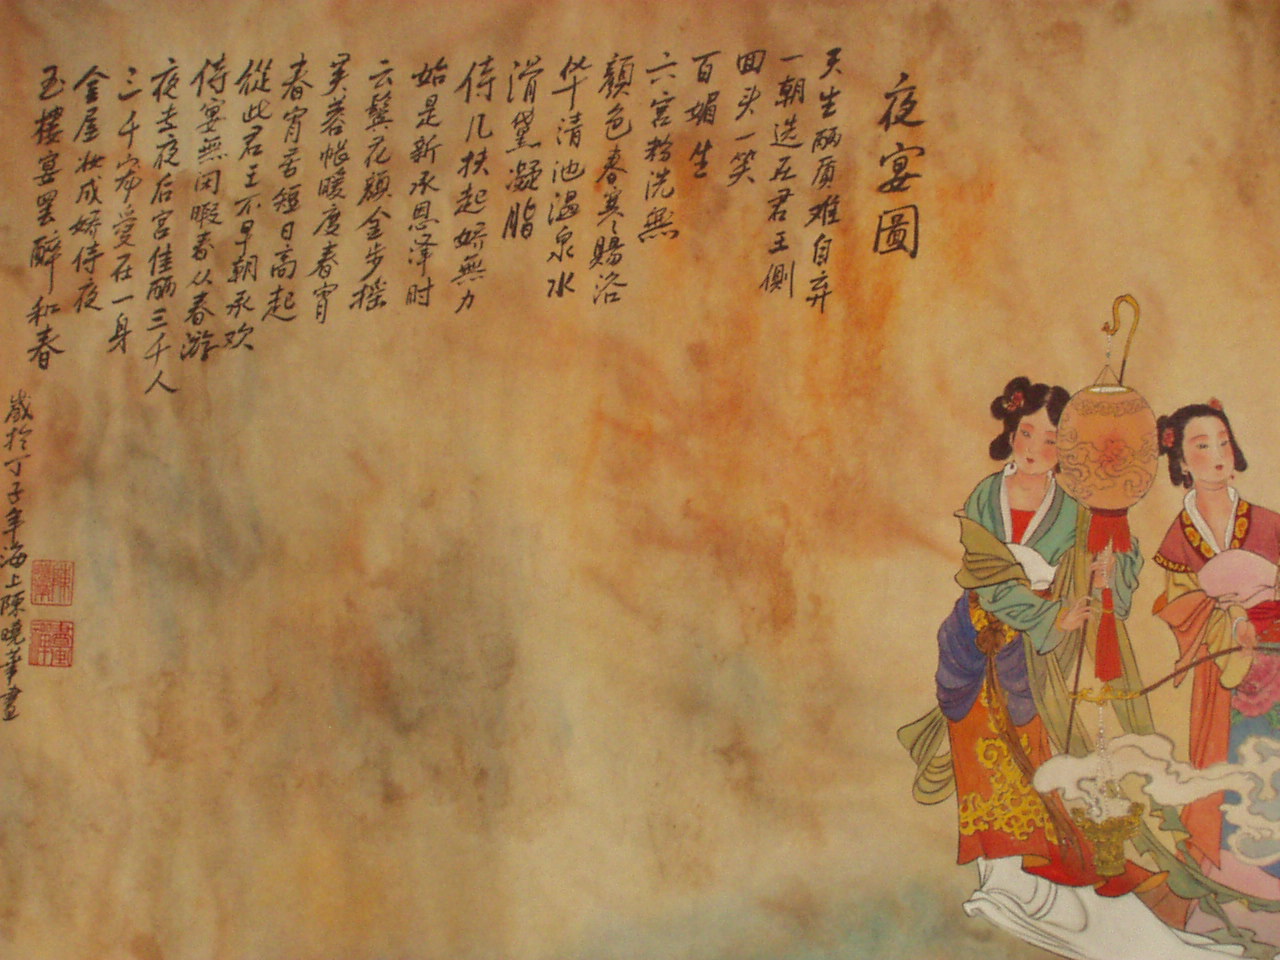 夜宴圖
天生丽质难自弃
一朝选在君王側
回头一笑
百媚生
六宫粉洗無
顏色春寒赐浴
华清池温泉水
滑黛凝脂
侍儿扶起娇無力
始是新承恩泽时
云鬓花颜金步摇
芙蓉帐暖度春宵
春宵苦短日高起
從此君王不早朝承欢
侍宴無闲暇春从春游
夜专夜后宫佳丽三千人
三千宠爱在一身
金屋妆成娇侍夜
玉楼宴罢醉和春
歲於丁子年海上陳曉華畫